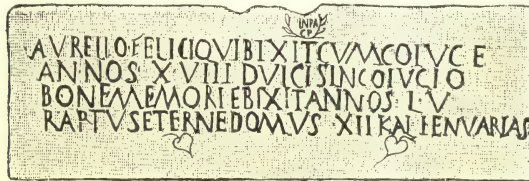 IN PA
CP
AVRELIO FELICI QVI BIXIT CVM COIVCE
ANNOS X·VIII DVLCIS IN COIVCIO
BONE MEMORIE BIXIT ANNOS·L·V
RAPTVS ETERNE DOMVS XII KAL IENVARIAS